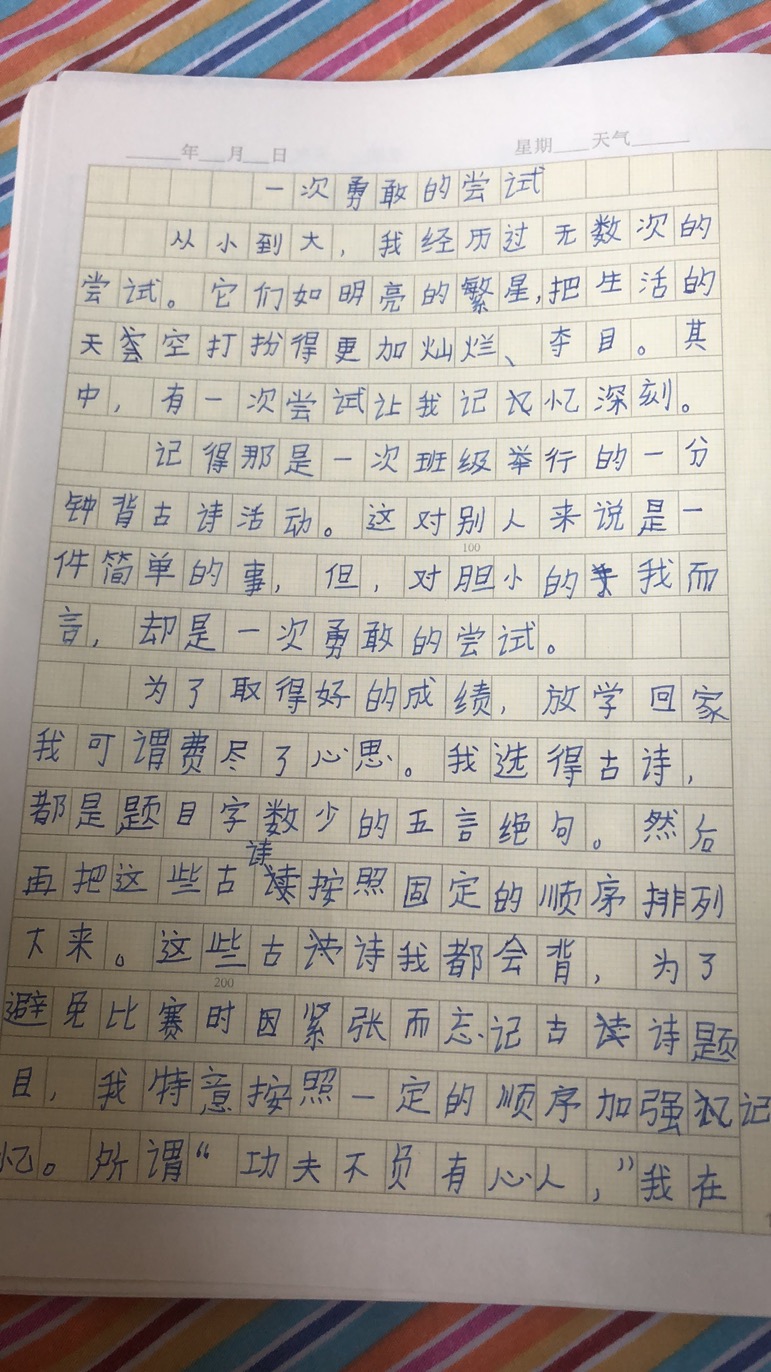 年 月 日 星期 天气
一次勇敢的尝试
从小到大，我经历过无数次的
尝试。它们如明亮的繁星，把生活的
天空打扮得更加灿烂、夺目。其
中，有一次尝试让我记忆深刻。
记得那是一次班级举行的一分
钟背古诗活动。这对别人来说是一
100
件简单的事，但，对胆小的我而
言，却是一次勇敢的尝试。
为了取得好的成绩，放学回家
我可谓费尽了心思。我选得古诗，
都是题目字数少的五言绝句。然后
再把这些古诗按照固定的顺序排列
下来。这些古诗我都会背，为了
200
避免比赛时因紧张而忘记古诗题
目，我特意按照一定的顺序加强记
忆。所谓“功夫不负有心人，”我在